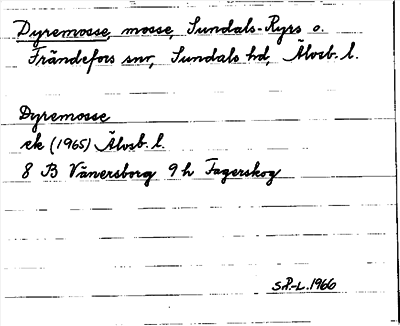 Dyremosse, mosse, Sundals-Ryrs o.
Frändefors snr, Sundals hd, Älvsb. l.
Dyremosse
ek (1965) Älvsb. l.
8 B Vänersborg 9 h Fagerskog
S.P.-L. 1966